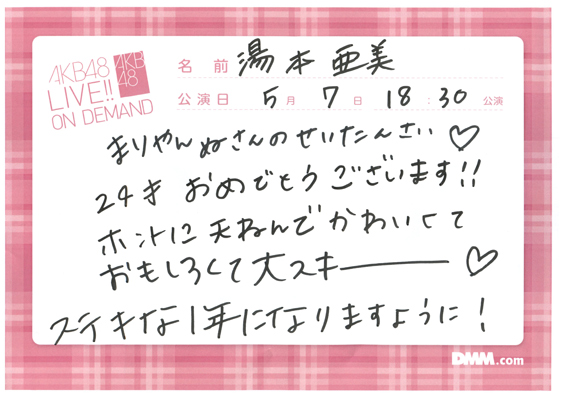 AKB48
LIVE!!
ON DEMAND
AKB
48
名前 湯本亜美
公演日 5月7日 18:30公演
まりやんぬさんのせいたんさい♡
24才 おめでとうございます!!
ホントに天ねんでかわいくて
おもしろくて大スキ――♡
ステキな1年になりますように!
DMM.com